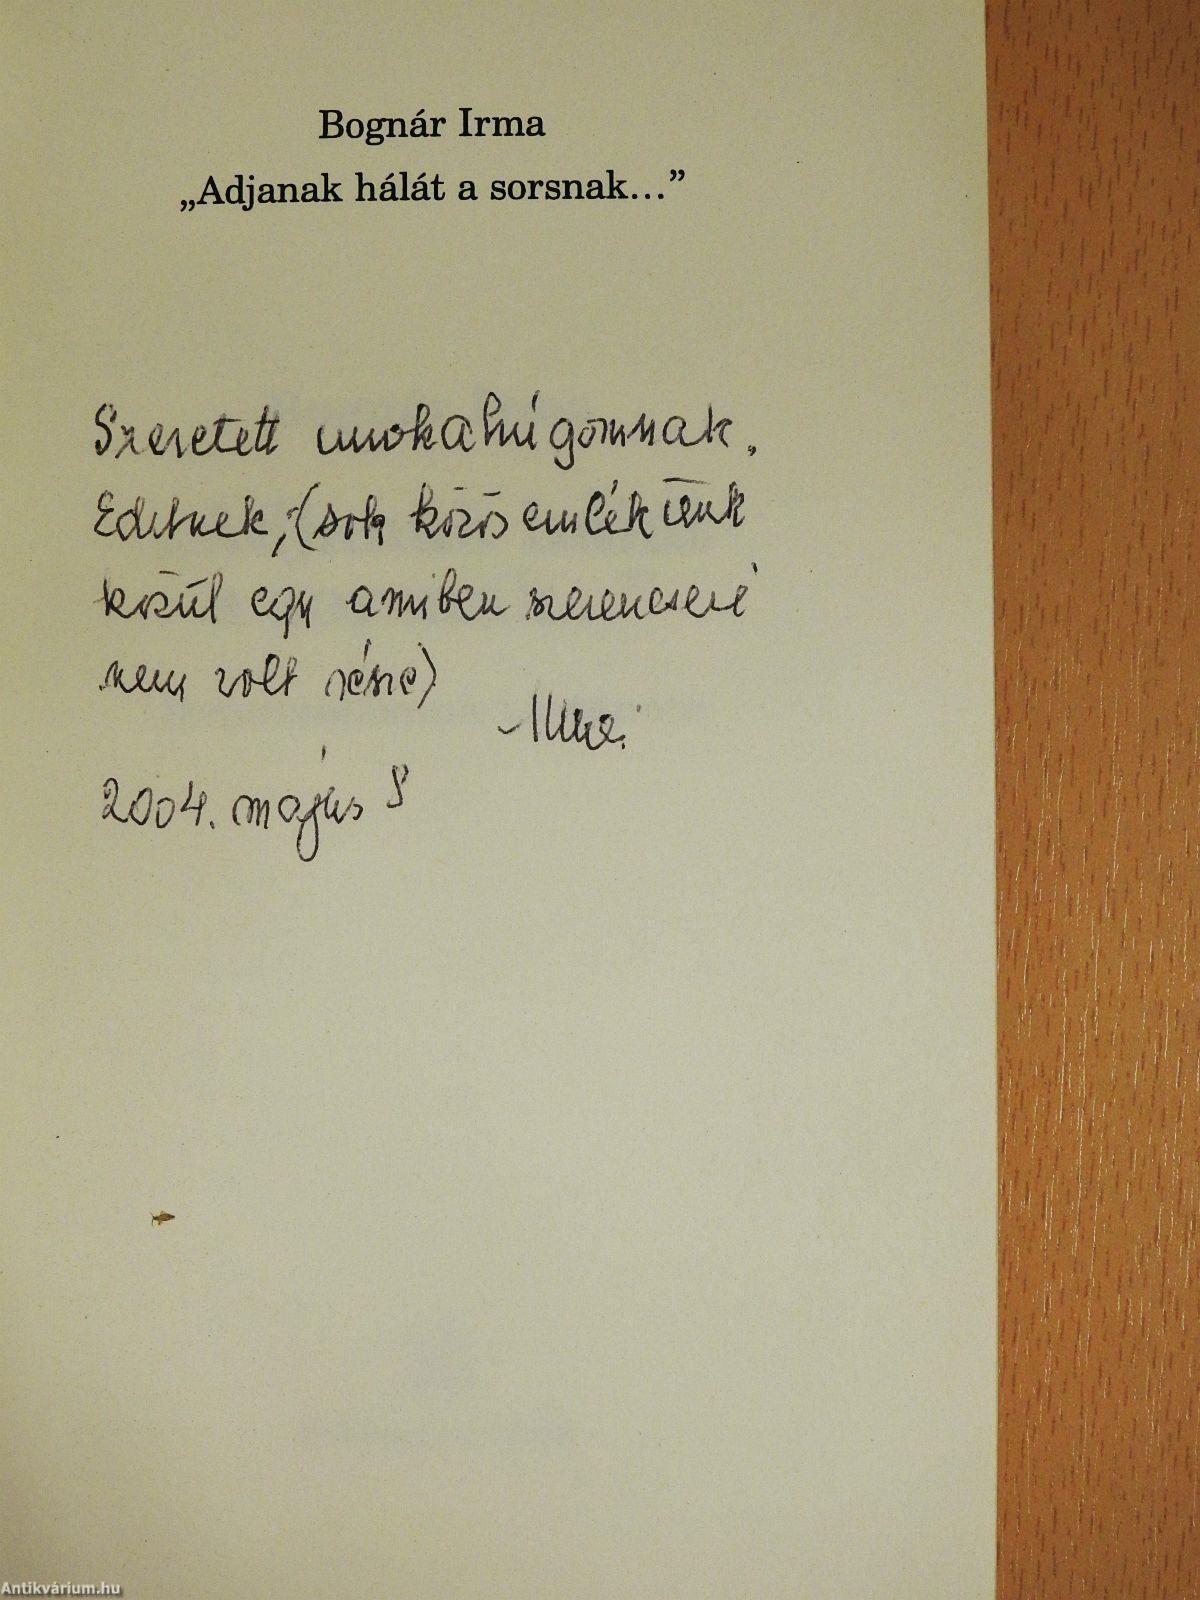 Bognár Irma
„Adjanak hálát a sorsnak...”
Szeretett unokahúgomnak,
Editnek, (sok közös emlékünk
közül egy amiben szerencséré
nem volt része)
2004. május
Antikvárium.hu